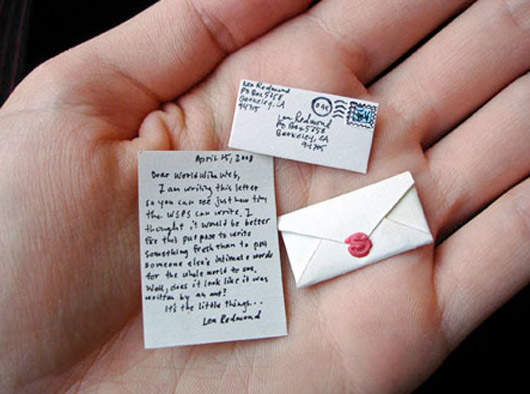 Lea Redmond
PO Box 5258
Berkeley, CA
94705
Lea Redmond
PO Box 5258
Berkeley, CA
94705
April 15, 2008
Dear World Wide Web,
I am writing this letter
so you can see just how tiny
the WSPS can write. I
thought it would be better
for this purpose to write
something fresh than to post
someone else's intimate words
for the whole world to see.
Well, does it look like it was
written by an ant?
It's the little things...
Lea Redmond